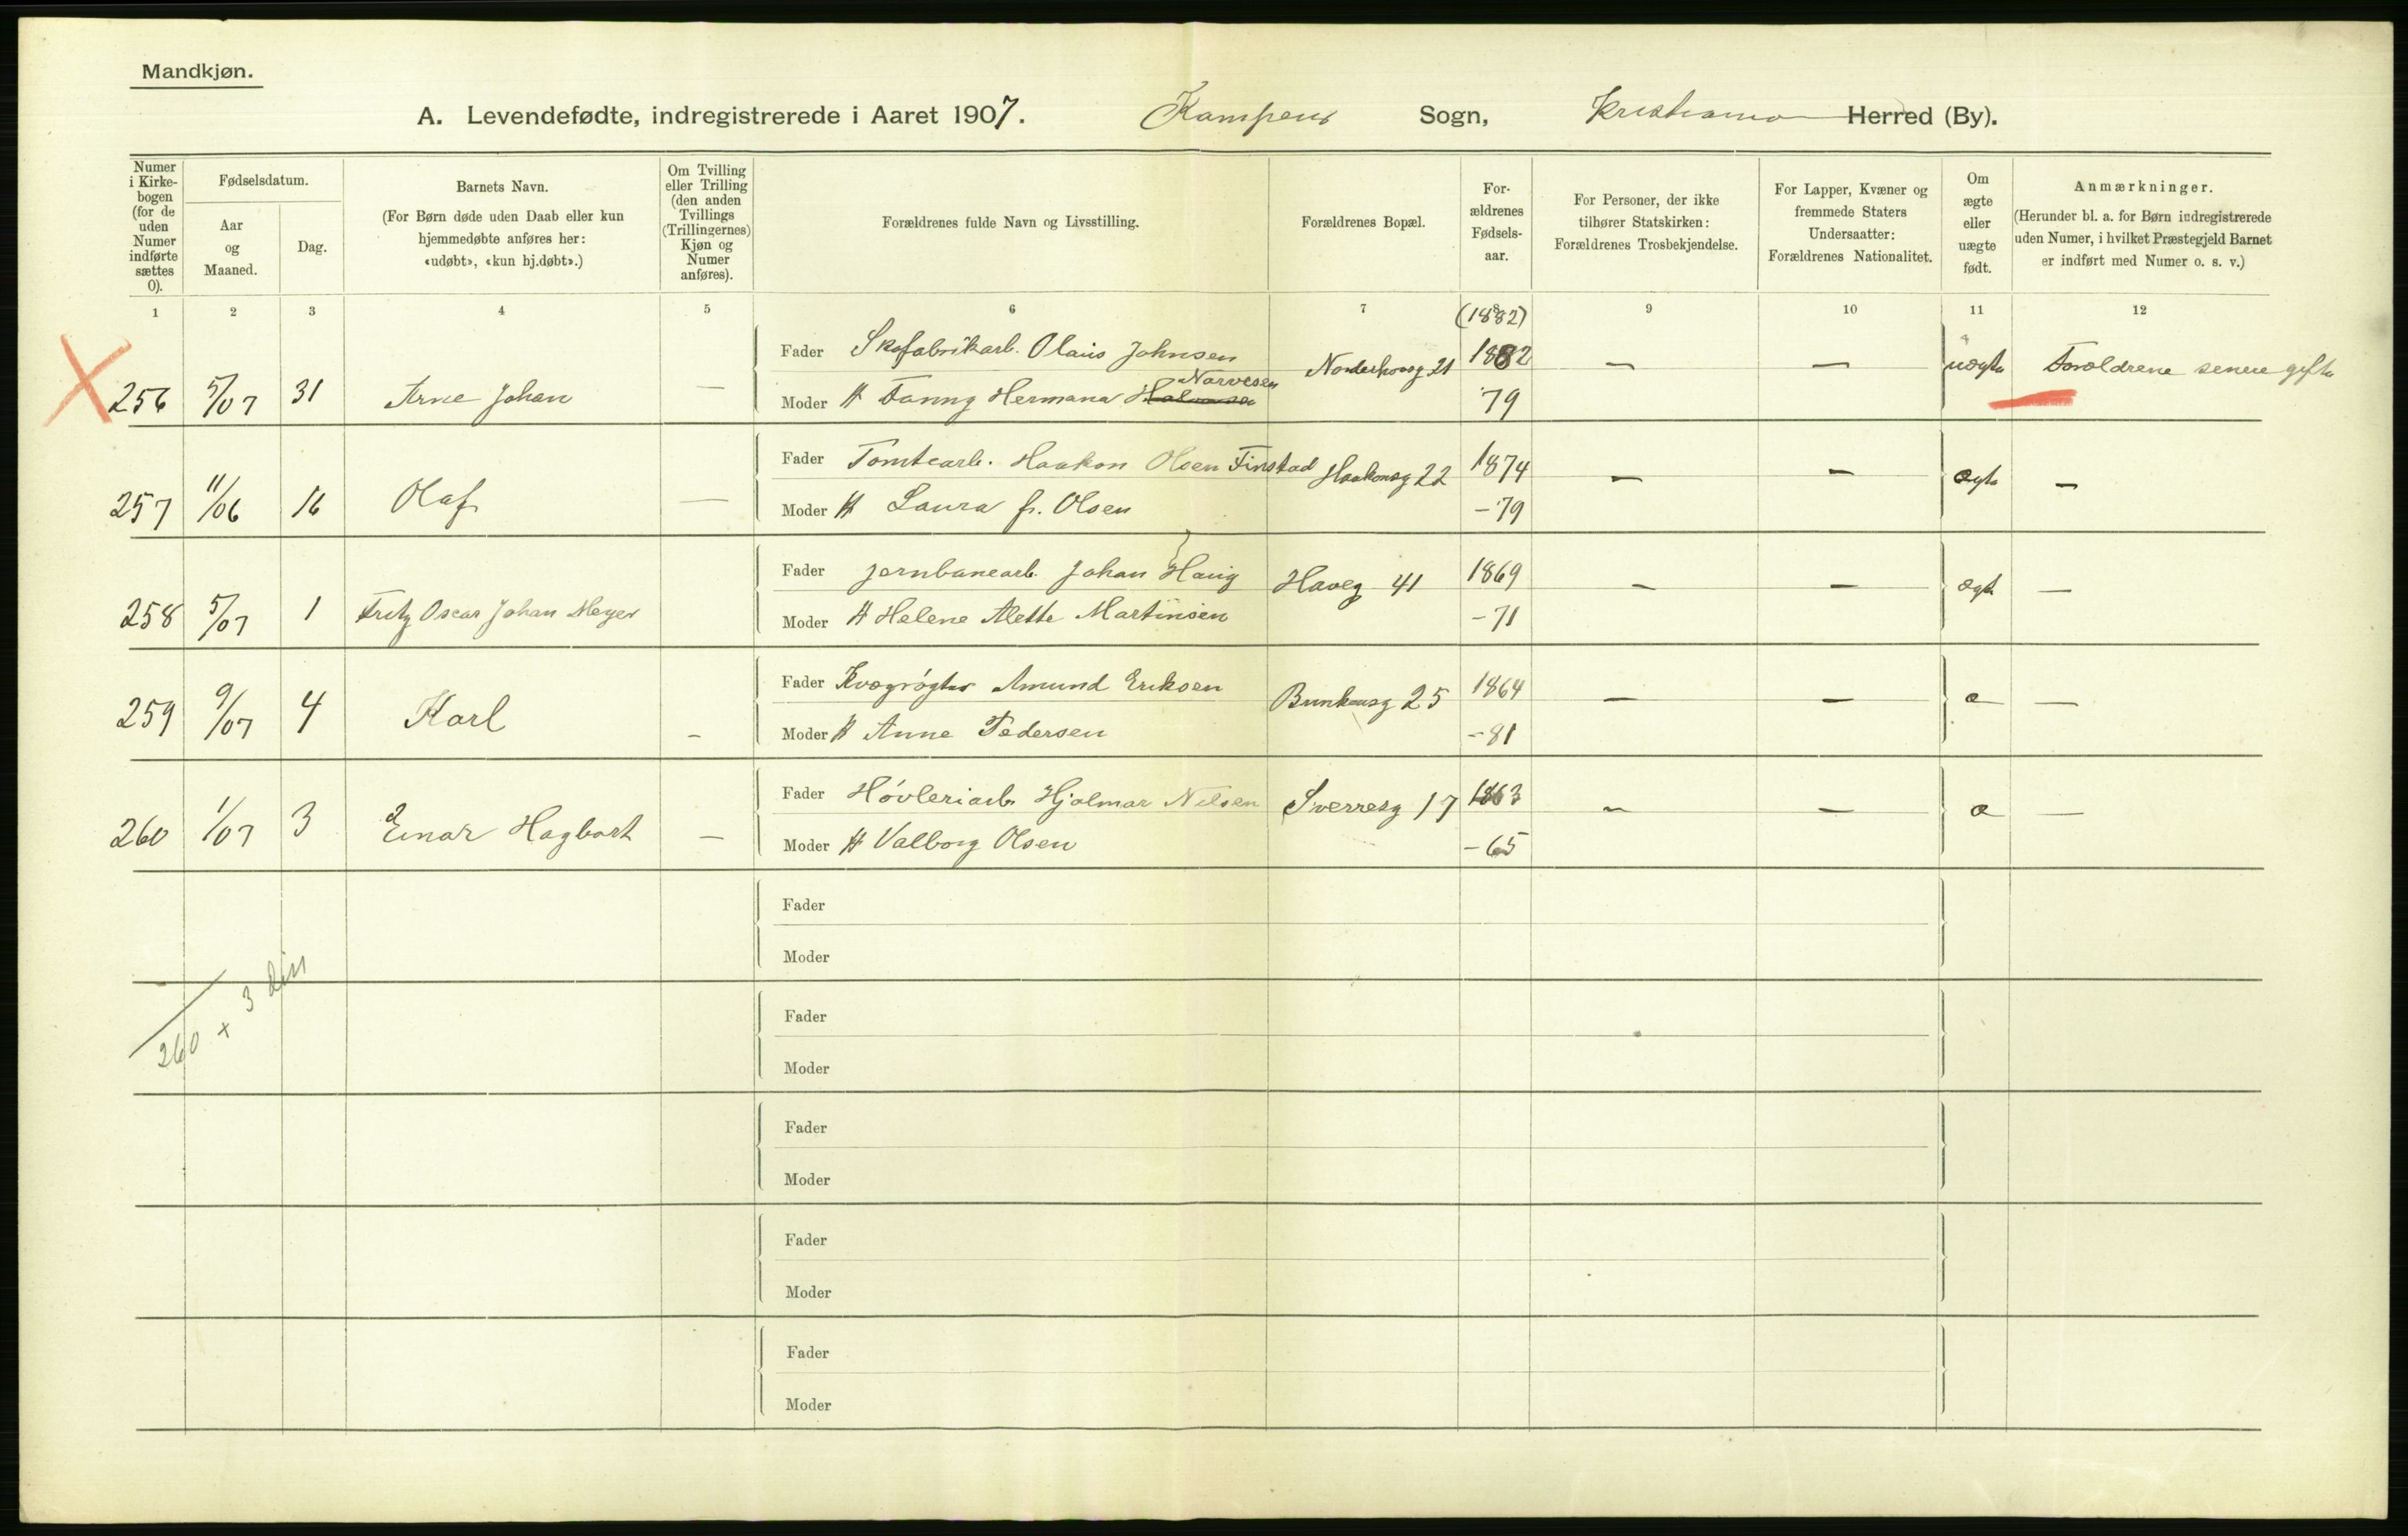 Mandkjøn.
A. Levendefødte, indregistrerede i Aaret 1907. Kampens Sogn, Kristiania Herred (By).
Numer i Kirkebogen (for de uden Numer indførte sættes 0).
Fødselsdatum.
Aar og Maaned.
Dag.
Barnets Navn.
(For Børn døde uden Daab eller kun hjemmedøbte anføres her: «udøbt», «kun hj.døbt».)
Om Tvilling eller Trilling (den anden Tvillings (Trillingernes) Kjøn og Numer anføres).
Forældrenes fulde Navn og Livsstilling.
Forældrenes Bopæl.
Forældrenes Fødselsaar.
For Personer, der ikke tilhører Statskirken: Forældrenes Trosbekjendelse.
For Lapper, Kvæner og fremmede Staters Undersaatter: Forældrenes Nationalitet.
Om ægte eller uægte født.
Anmærkninger.
(Herunder bl. a. for Børn indregistrerede uden Numer, i hvilket Præstegjeld Barnet er indført med Numer o. s. v.)
1 2 3 4 5 6 7 8 9 10 11 12
(1882)
Fader Skofabrikarb. Olaus Johnsen Norderhovsg 21 1882 — — uægte Forældrene senere gifte
256 5/07 31 Arne Johan — Moder H Fanny Hermana Narvesen 79
Fader Tomtearb. Haakon Olsen Finstad Haakonsg 22 1874 — — ægte —
257 11/06 16 Olaf — Moder H Laura f. Olsen - 79
Fader Jernbanearb. Johan Haug Haveg 41 1869 — — ægte —
258 5/07 1 Fritz Oscar Johan Meyer Moder H Helene Alette Martinsen - 71
Fader Kvægrøgter Amund Eriksen 25 1864 — — æ —
259 9/07 4 Karl - Moder H Anne Pedersen - 81
Fader Høvleriarb. Hjalmar Nilsen Sverresg 17 1863 — — æ —
260 1/07 3 Einar Hagbart — Moder H Valborg Olsen - 65
Fader
Moder
260 + 3
Fader
Moder
Fader
Moder
Fader
Moder
Fader
Moder